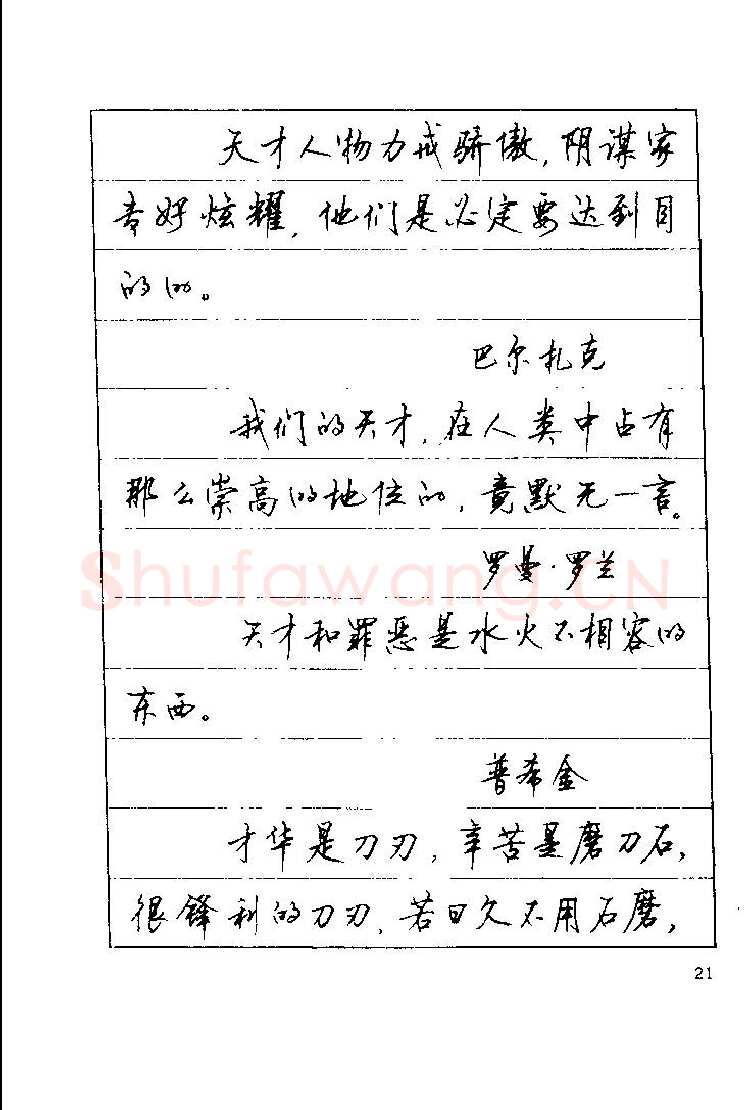 天才人物力戒骄傲,阴谋家
专好炫耀,他们是必定要达到目
的的。
巴尔扎克
我们的天才,在人类中占有
那么崇高的地位的,竟默无一言。
Shufawang.CN
罗曼·罗兰
天才和罪恶是水火不相容的
东西。
普希金
才华是刀刃,辛苦是磨刀石,
很锋利的刀刃,若日久不用石磨,
21